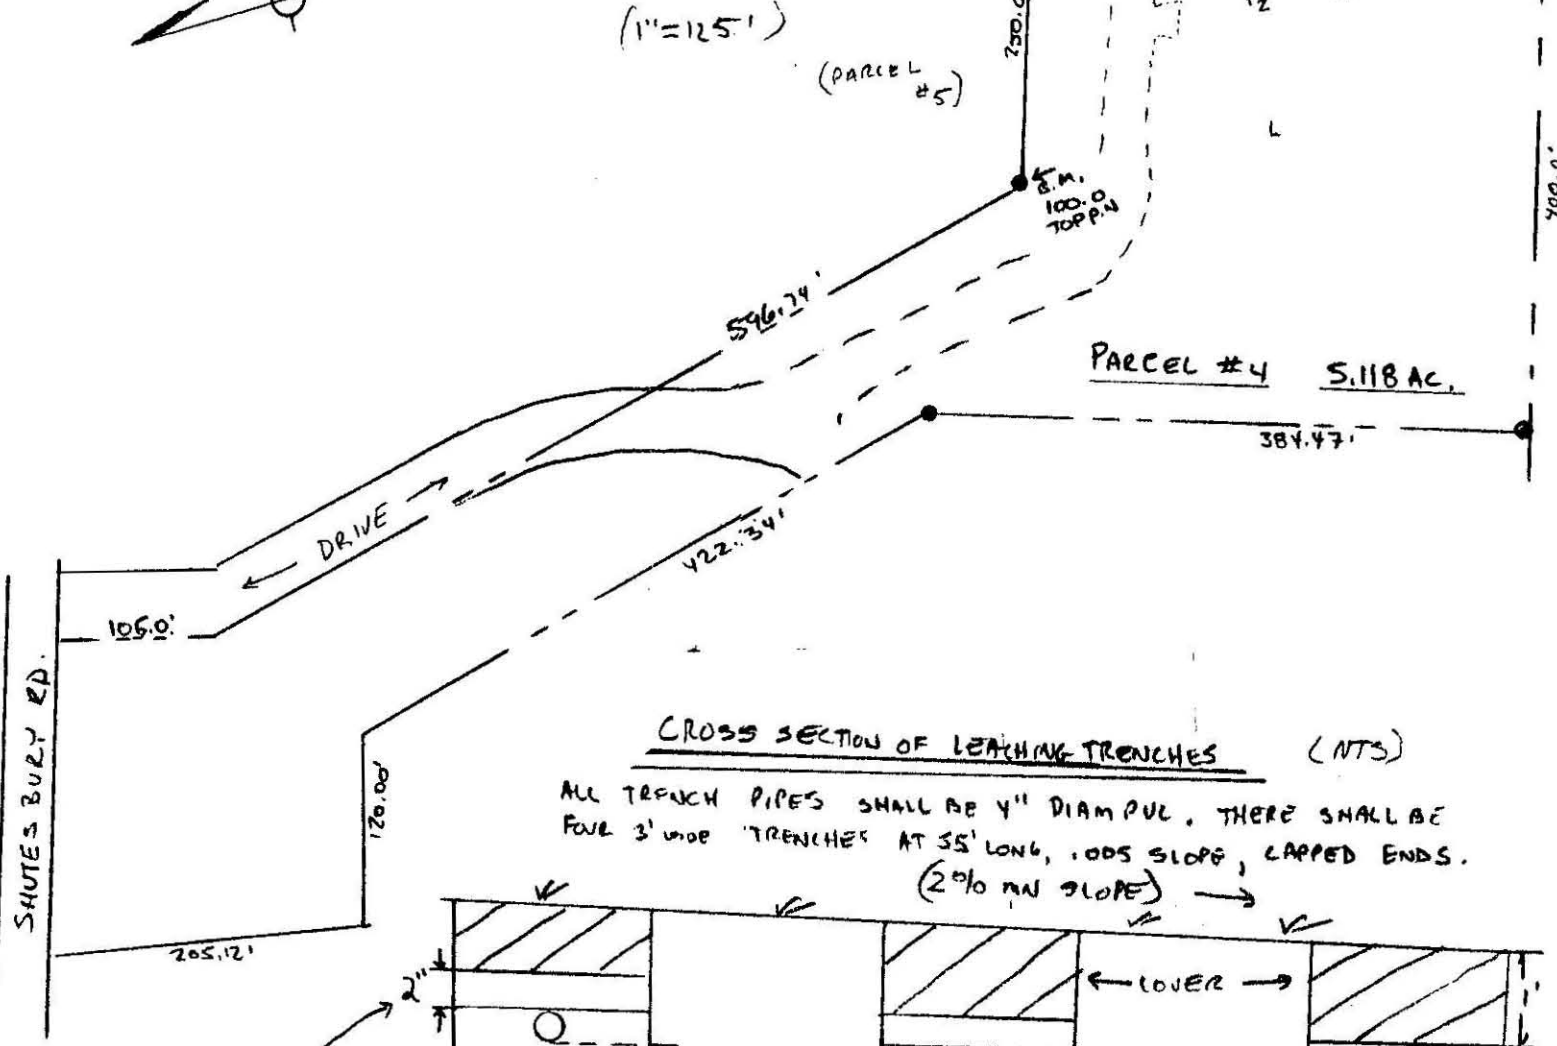 (1"=125')
(PARCEL
#5)
250.0
L
B.M.
100.0
TOP PIN
400.0'
596.74'
PARCEL #4 5.118 AC.
384.47'
DRIVE
422.34'
105.0'
SHUTESBURY RD.
120.00'
205.12'
CROSS SECTION OF LEACHING TRENCHES (NTS)
ALL TRENCH PIPES SHALL BE 4" DIAM PVC. THERE SHALL BE
FOUR 3' WIDE TRENCHES AT 55' LONG, .005 SLOPE, CAPPED ENDS.
(2% MIN SLOPE)
2"
COVER
1'